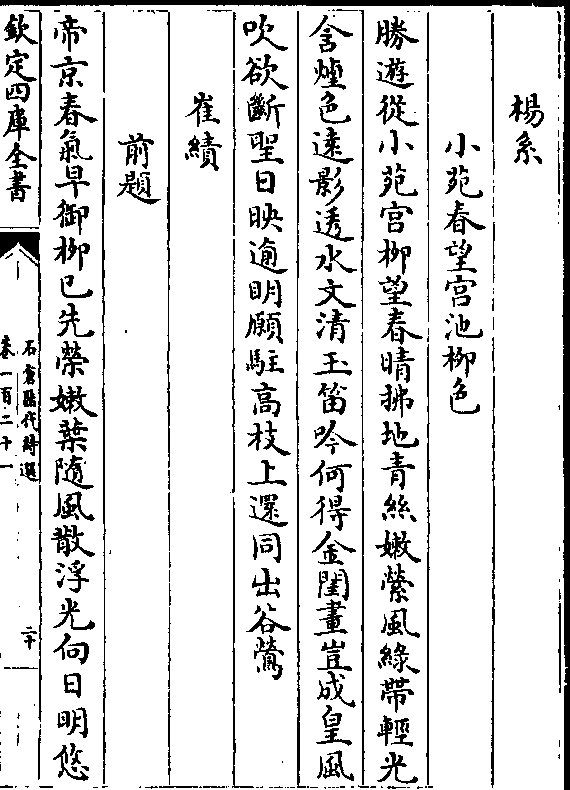 楊系
小苑春望宫池柳色
勝遊從小苑宫柳望春晴拂地青絲嫩縈風綠帶輕光
含煙色遠影透水文清玉笛吟何得金閨畫豈成皇風
吹欲斷聖日映逾明願駐高枝上還同出谷鶯
崔績
前題
帝京春氣早御柳已先榮嫩葉隨風散浮光向日明悠
欽定四庫全書
石倉歷代詩選
卷一百二十一
二十